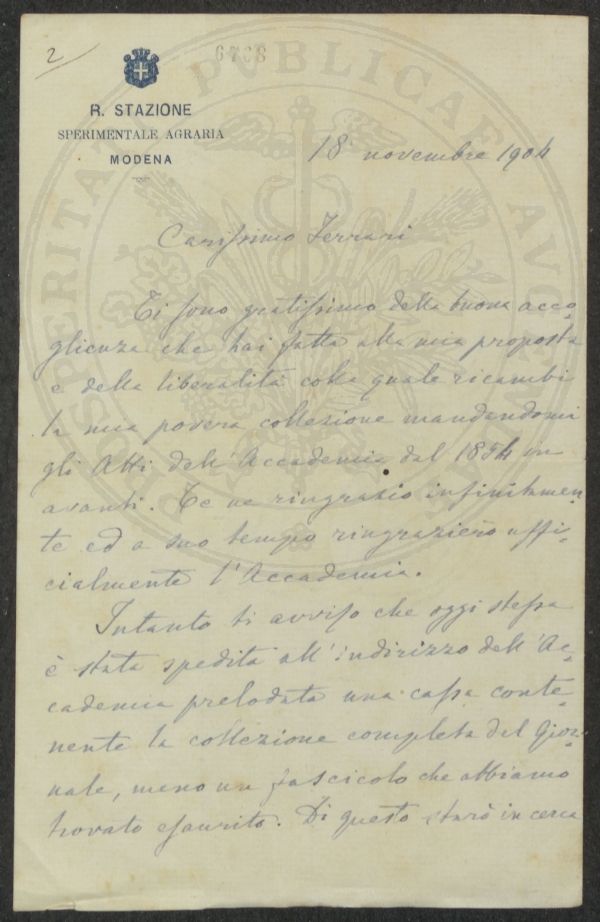 2
6768
R. STAZIONE
SPERIMENTALE AGRARIA
MODENA
18 novembre 1904
Carissimo Ferrari
Ti sono gratissimo della buona acco-
glienza che hai fatta alla mia proposta
e della liberalità colla quale ricambi
la mia povera collezione mandandomi
gli Atti dell'Accademia dal 1854 in
avanti. Te ne ringrazio infinitamen-
te ed a suo tempo ringrazierò uffi-
cialmente l'Accademia.
Intanto ti avviso che oggi stesso
è stata spedita all'indirizzo dell'Ac-
cademia prelodata una cassa conte-
nente la collezione completa del Gior-
nale, meno un fascicolo che abbiamo
trovato esaurito. Di questo starò in cerca